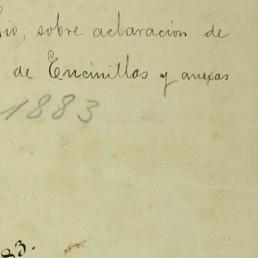 sobre aclaración de
de Encinillas y anexas
1883
83.